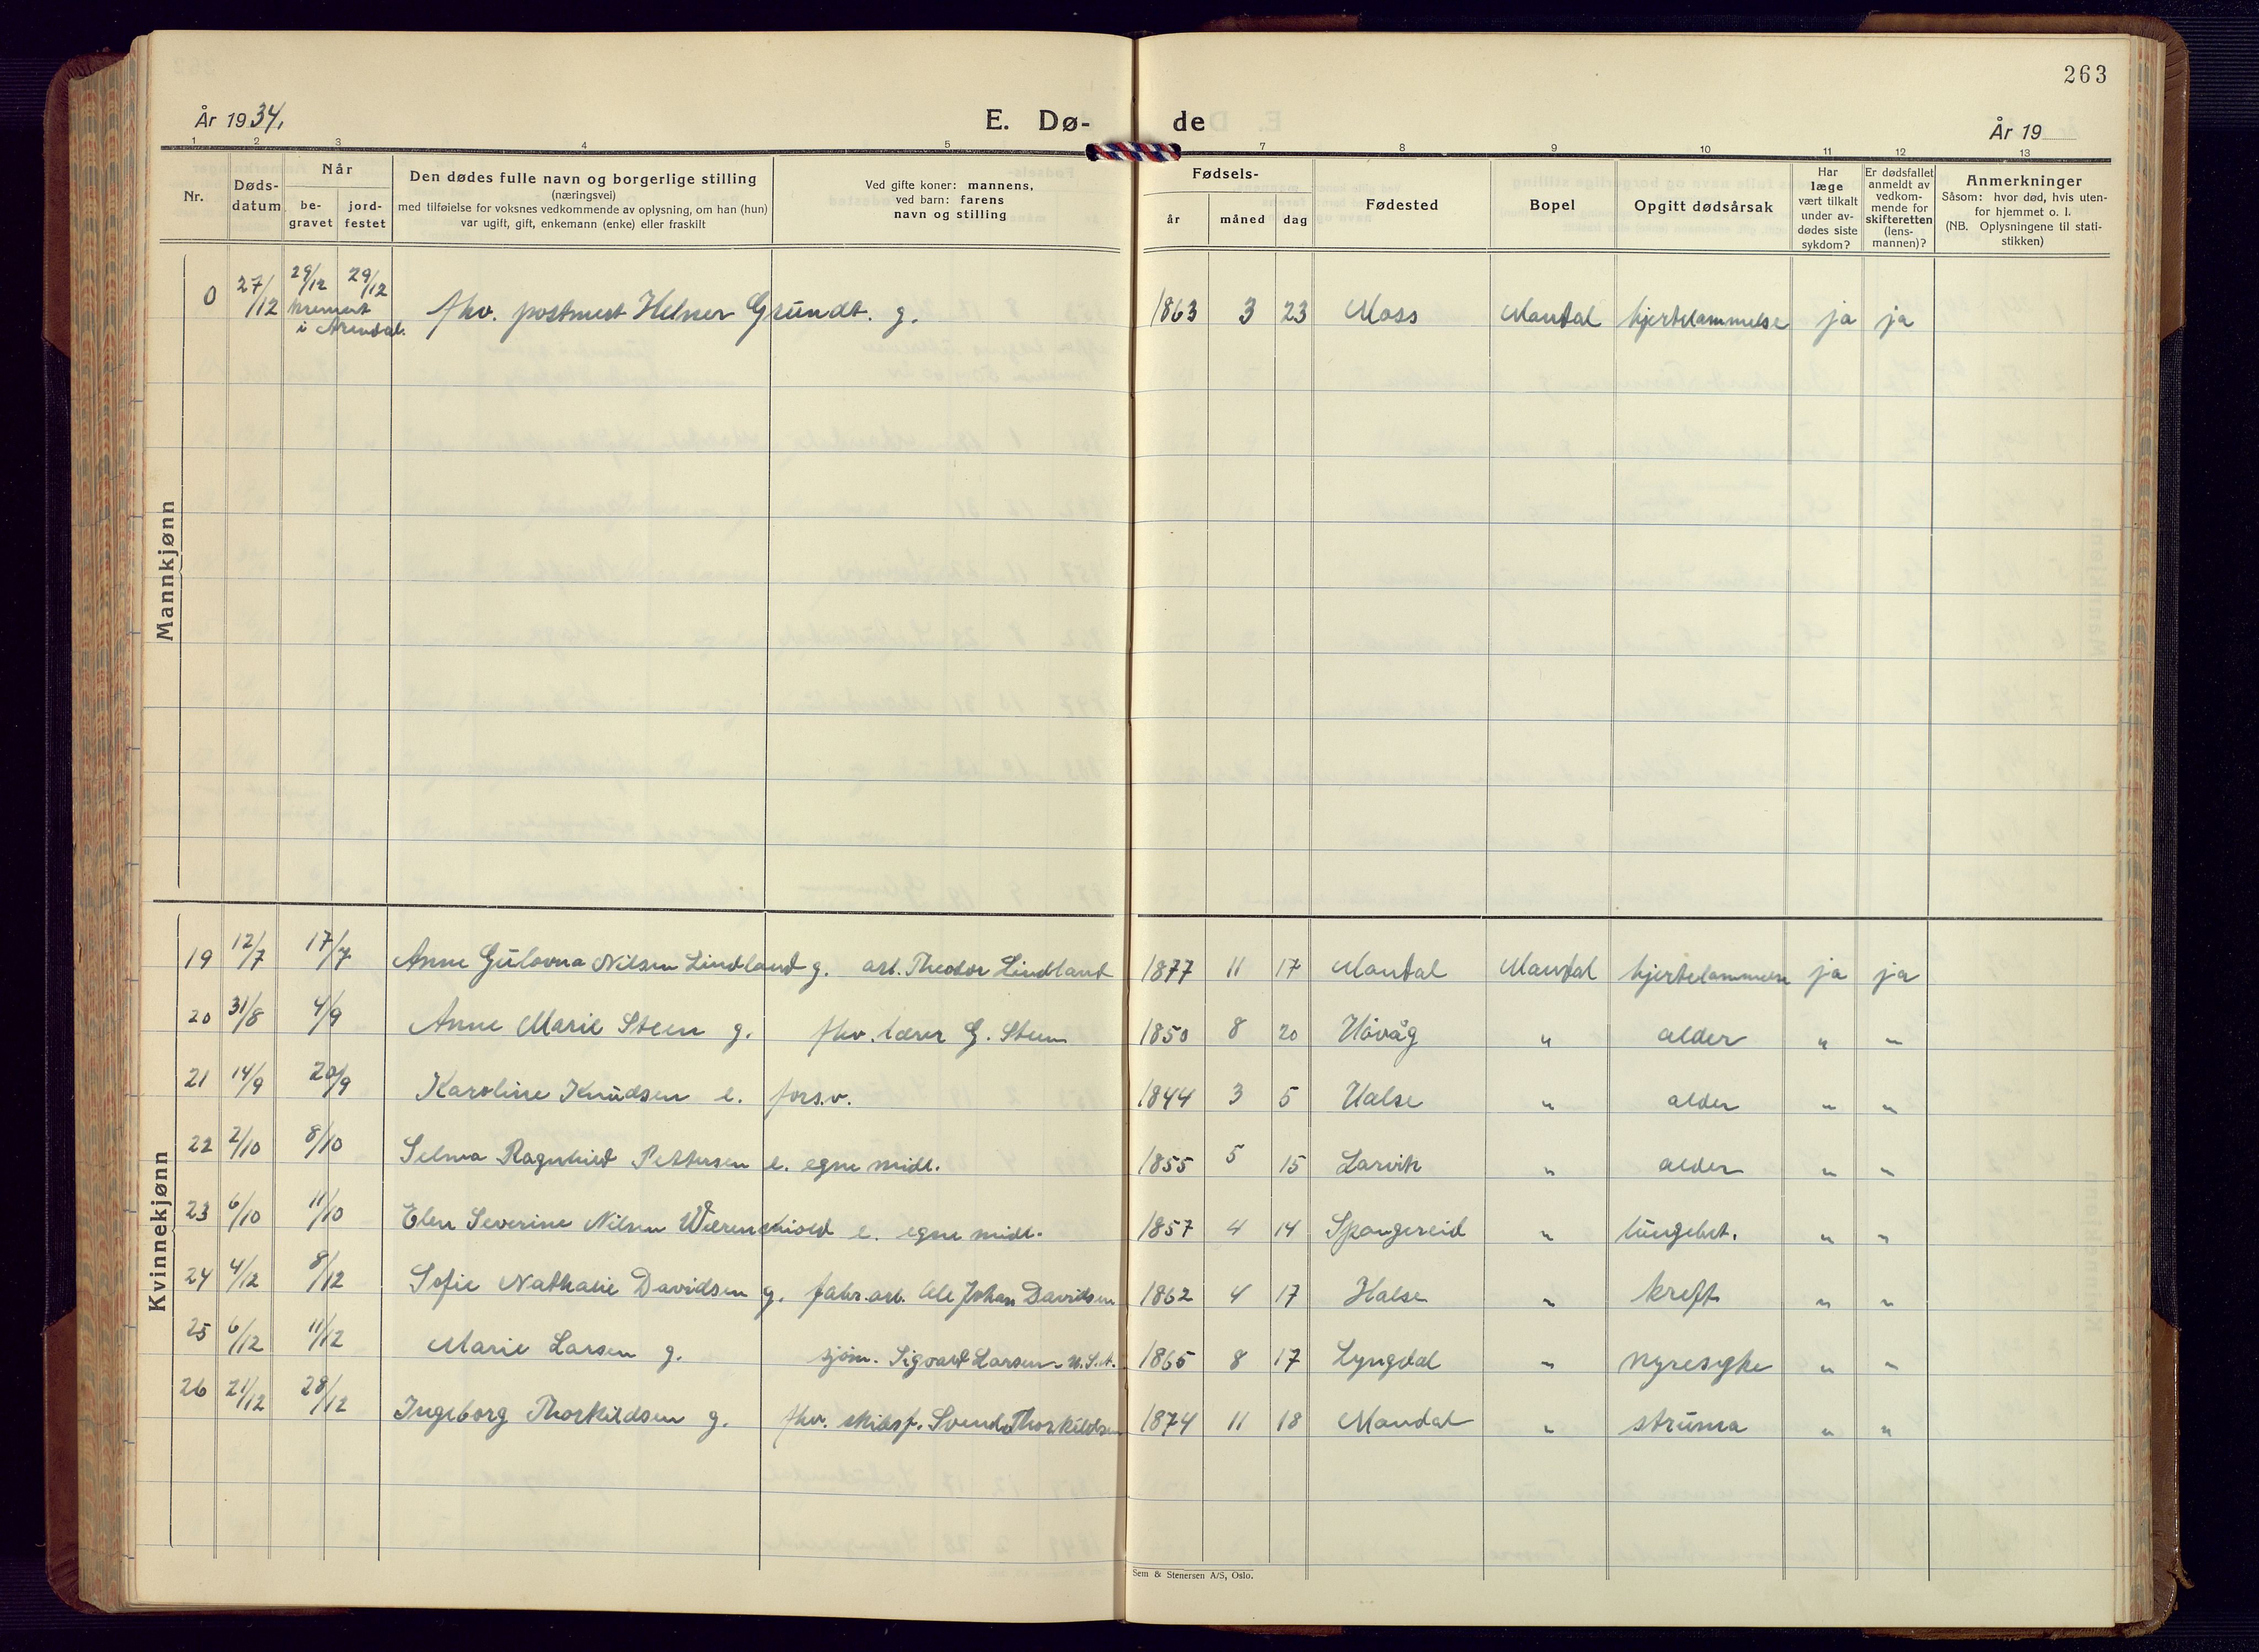 263
År 1934.
E. Dø-
de
År 19
1 2 3 4 5 7 8 9 10 11 12 13
Nr.
Døds-
datum
Når
be-
gravet
jord-
festet
Den dødes fulle navn og borgerlige stilling
(næringsvei)
med tilføielse for voksnes vedkommende av oplysning, om han (hun)
var ugift, gift, enkemann (enke) eller fraskilt
Ved gifte koner: mannens,
ved barn: farens
navn og stilling
Fødsels-
år måned dag
Fødested
Bopel
Opgitt dødsårsak
Har
læge
vært tilkalt
under av-
dødes siste
sykdom?
Er dødsfallet
anmeldt av
vedkom-
mende for
skifteretten
(lens-
mannen)?
Anmerkninger
Såsom: hvor død, hvis uten-
for hjemmet o. l.
(NB. Oplysningene til stati-
stikken)
Mannkjønn
0 27/12 29/12 29/12 fhv. postmest Helmer Grundt. g. 1863 3 23 Moss Mandal hjertelammelse ja ja
kremert
i Arendal.
Kvinnekjønn
19 12/7 17/7 Anne Gulovna Nilsen Lindland g. arb. Theodor Lindland 1877 11 17 Mandal Mandal hjertelammelse ja ja
20 31/8 4/9 Anne Marie Steen g. fhv. lærer G. Steen 1850 8 20 Høvåg " alder " "
21 14/9 20/9 Karoline Knudsen e. fors.v. 1844 3 5 Halse " alder " "
22 2/10 8/10 Selma Ragnhild Pettersen e. egne midl. 1855 5 15 Larvik " alder " "
23 6/10 11/10 Elen Severine Nilsen Wærenskiold e. egne midl. 1857 4 14 Spangereid " lungebet. " "
24 4/12 8/12 Sofie Nathalie Davidsen g. fabr.arb. Ole Johan Davidsen 1862 4 17 Halse " kreft " "
25 6/12 11/12 Marie Larsen g. sjøm. Sigvard Larsen - U.S.A. 1865 8 17 Lyngdal " nyresyke " "
26 21/12 28/12 Ingeborg Thorkildsen g. fhv. skibsf. Svend Thorkildsen 1874 11 18 Mandal " struma " "
Sem & Stenersen A/S, Oslo.